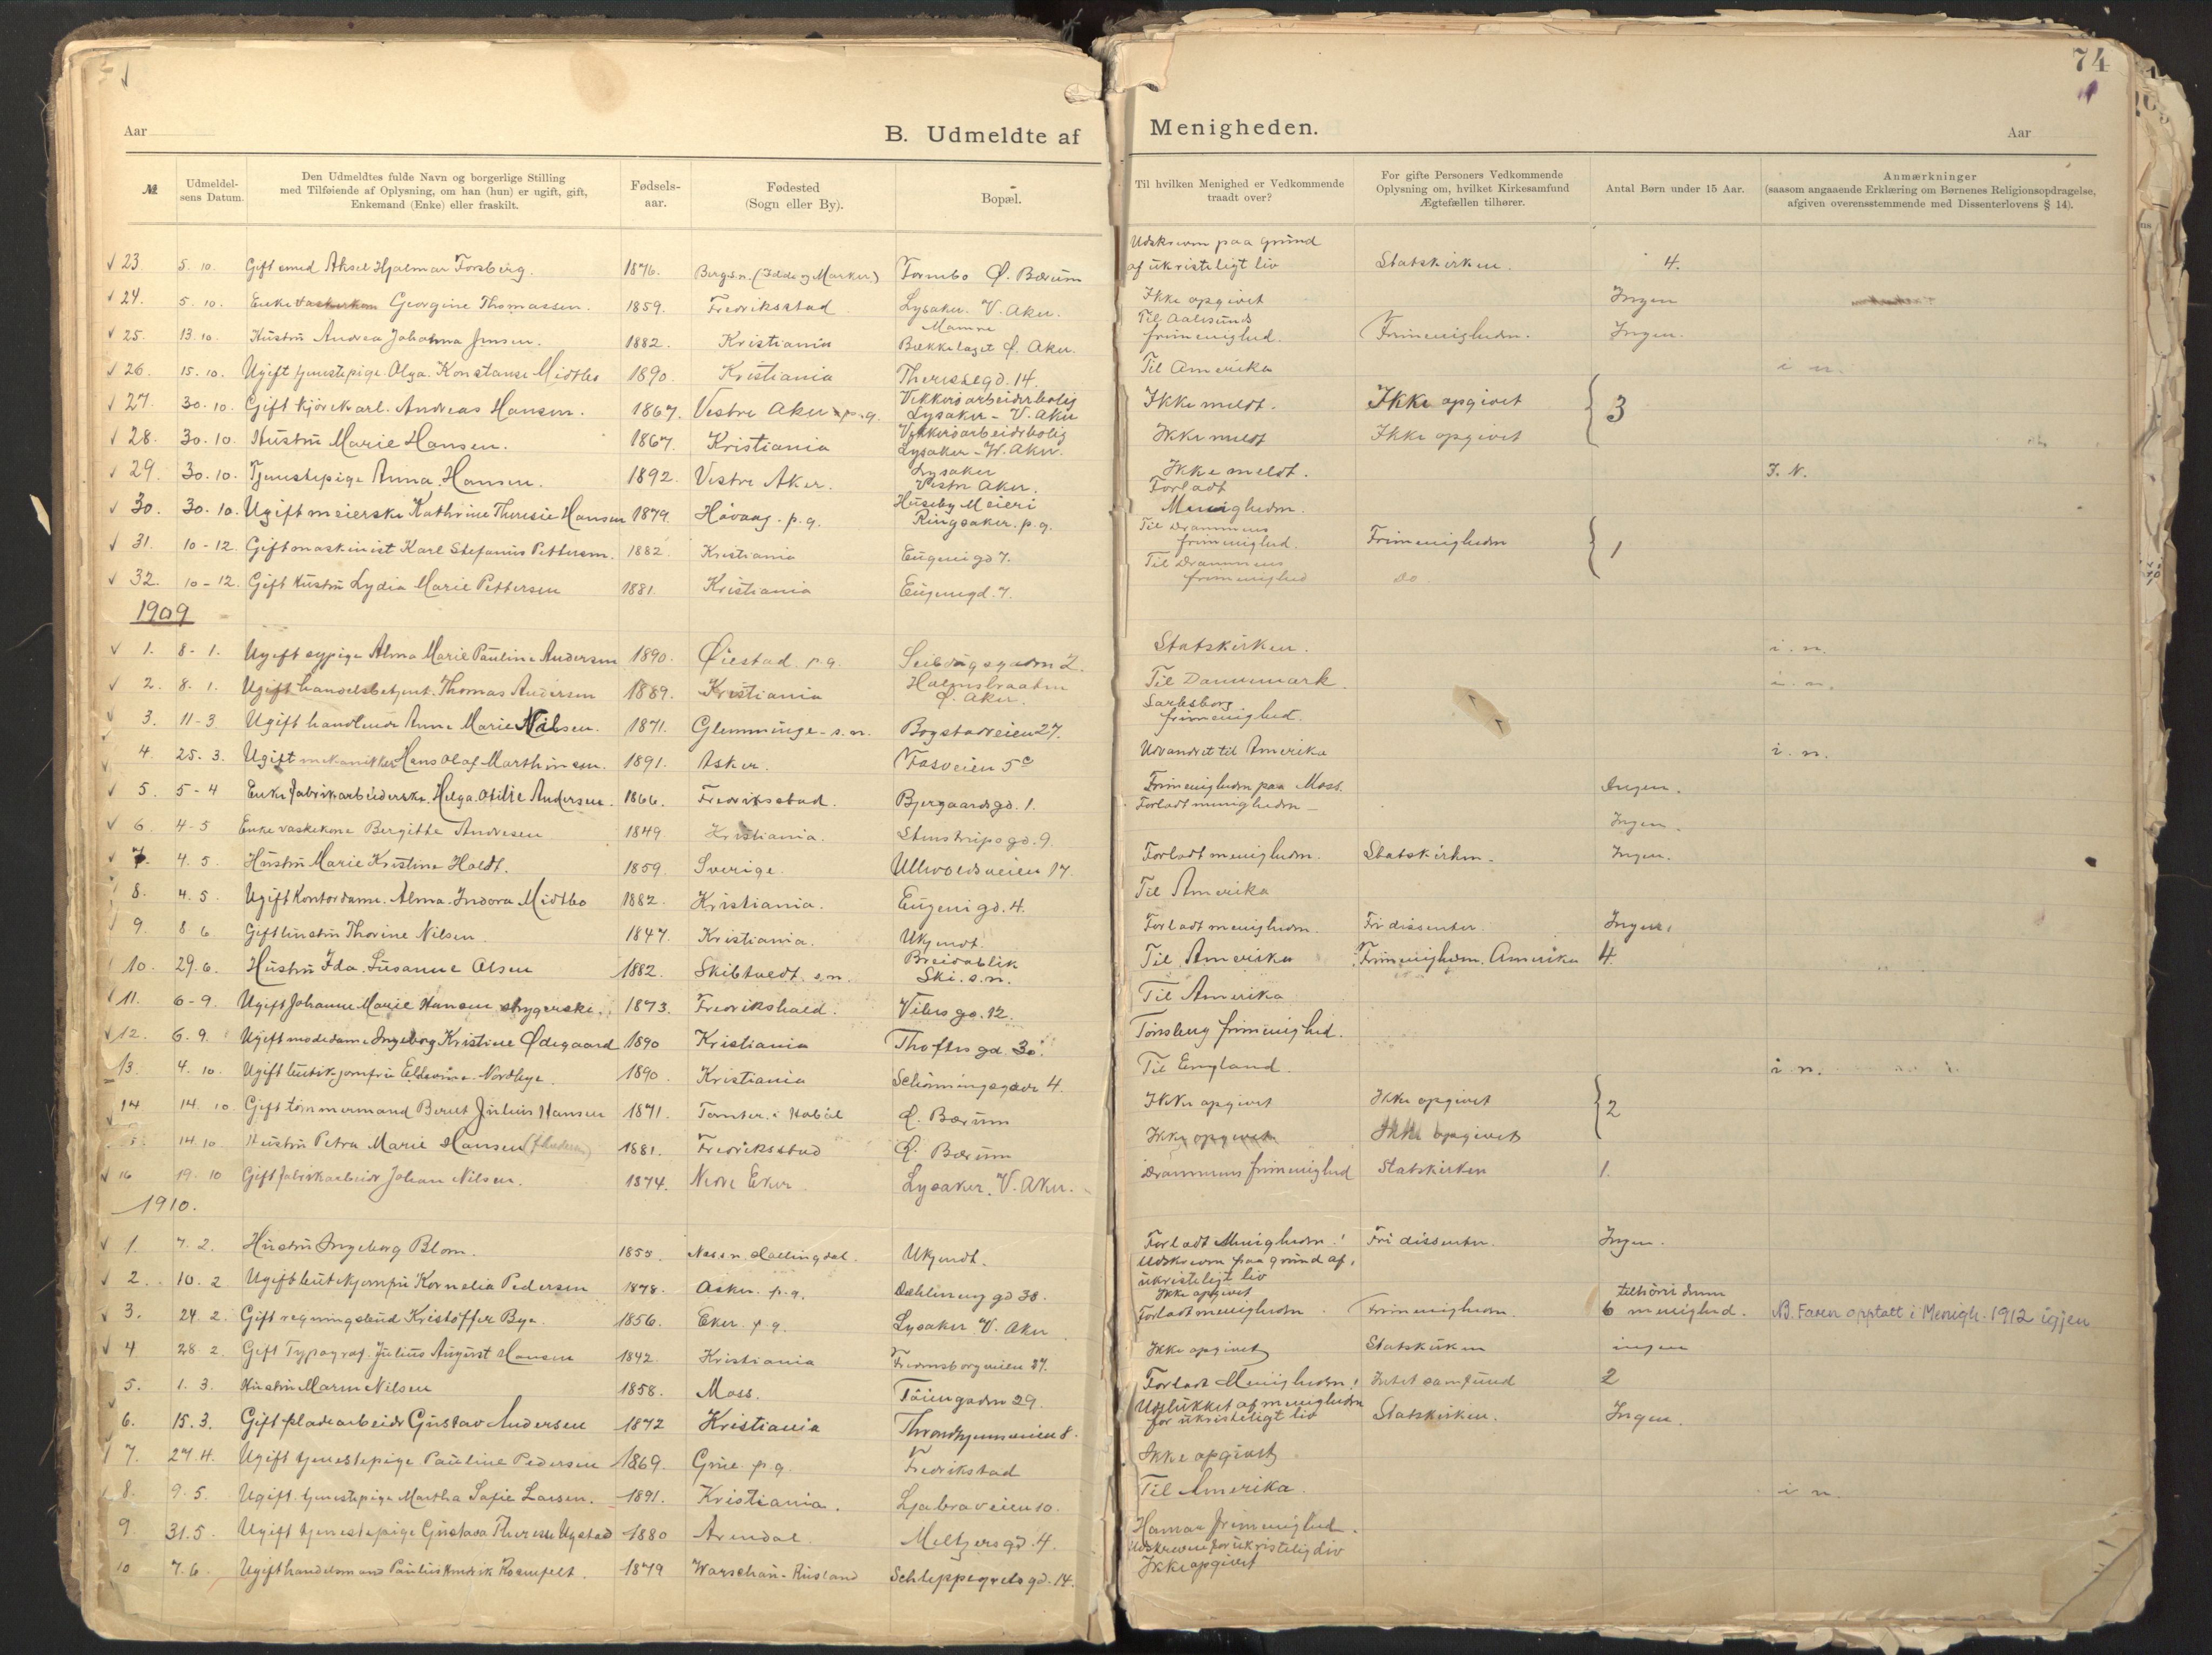 74
Aar
B. Udmeldte af Menigheden.
Aar
№
Udmeldelsens Datum.
Den Udmeldtes fulde Navn og borgerlige Stilling
med Tilføiende af Oplysning, om han (hun) er ugift, gift,
Enkemand (Enke) eller fraskilt.
Fødselsaar.
Fødested
(Sogn eller By).
Bopæl.
Til hvilken Menighed er Vedkommende
traadt over?
For gifte Personers Vedkommende
Oplysning om, hvilket Kirkesamfund
Ægtefællen tilhører.
Antal Børn under 15 Aar.
Anmærkninger
(saasom angaaende Erklæring om Børnenes Religionsopdragelse,
afgiven overensstemmende med Dissenterlovens § 14).
23 5. 10. Gift smed Aksel Hjalmar Forsberg. 1876. Bergs.n. (Idde og Marker) Fornebo Ø. Bærum Udskreven paa grund af ukristeligt liv Statskirken. 4.
24. 5. 10. Enke Georgine Thomassen. 1859. Fredriksstad Lysaker. V. Aker. Ikke opgivet Ingen
25. 13. 10 Hustru Andrea Johanna Jensen. 1882. Kristiania Bækkelaget Ø. Aker. Til Aalesunds frimenighed. Frimenigheden. Ingen.
26. 15. 10. Ugift tjenestepige Olga Konstanse Midtbo 1890. Kristiania Theresegd. 14. Til Amerika i n.
27. 30. 10. Gift kjørekarl. Andreas Hansen. 1867. Vestre Aker p.g. Vekkerøarbeiderbolig Lysaker - V. Aker Ikke meldt. Ikke opgivet 3
28. 30. 10. Hustru Marie Hansen. 1867. Kristiania Vekkerøarbeiderbolig Lysaker - V. Aker. Ikke meldt Ikke opgivet
29. 30. 10. Tjenestepige Anna Hansen. 1892. Vestre Aker. Lysaker Vestre Aker. Ikke meldt. I. N.
30. 30. 10. Ugift meierske Kathrine Theresie Hansen 1879. Håvaag. p.g. Huseby Meieri Ringsaker. p.g. Forladt Menigheden.
31. 10-12. Gift maskinist Karl Stefanus Pettersen. 1882. Kristiania Eugenigd 7. Til Drammens frimenighed. Frimenigheden 1
32. 10-12. Gift Hustru Lydia Marie Pettersen 1881. Kristiania Eugenigd. 7. Til Drammens frimenighed Do.
1909
1. 8-1. Ugift sypige Alma Marie Pauline Andersen 1890. Øiestad p.g. Seildugsgaden 2. Statskirken. i. n.
2. 8. 1. Ugift handelsbetjent. Thomas Andersen 1889. Kristiania Holmsbraaten Ø. Aker. Til Dannmark i. n.
3. 11-3. Ugift handlende Anne Marie Nilsen. 1871. Glemminge - s.n. Bogstadveien 27. Sarpsborg frimenighed.
4 25. 3. Ugift mekaniker Hans Olaf Marthinsen. 1891. Asker. Fasveien 5c Udvandret til Amerika i. n.
5. 5-4 Enke fabrikarbeiderske. Helga Otilie Andersen. 1866. Fredriksstad. Bjergaardsgd. 1. Frimenigheden paa Moss. Ingen.
6. 4-5 Enke vaskekone Bergitte Andresen 1849 Kristiania. Stenstrupsgd. 9. Forladt menigheden - Ingen.
7. 4. 5. Hustru Marie Kristine Holdt. 1859. Sverige. Ullevoldsveien 17. Forladt menigheden. Statskirken. Ingen.
8. 4. 5. Ugift Kontordame. Alma Indora Midtbo 1882. Kristiania. Eugenigd. 4. Til Amerika
9. 8 6. Gift hustru Thorine Nilsen. 1847. Kristiania. Ukjendt. Forladt menigheden. Fri dissenter. Ingen.
10. 29. 6. Hustru Ida Susanne Olsen 1882. Skibtvedt. s.n. Breidablik Ski. s.n. Til Amerika Frimenigheden. Amerika 4.
11. 6-9. Ugift Johanne Marie Hansen strygerske. 1873. Fredrikshald. Vibesgd. 12. Til Amerika
12. 6. 9. Ugift modedame Ingeborg Kristine Ødegaard 1890 Kristiania Thoftesgd. 30. Tønsberg frimenighed.
13. 4. 10. Ugift butikjomfru Eldevine Nordbye. 1890. Kristiania Schønningsgade 4. Til England. i. n.
14 14. 10. Gift tømmermand Bernt Julius Hansen 1871. Tomter i Hobøl Ø. Bærum Ikke opgivet Ikke opgivet 2
14. 10 Hustru Petra Marie Hansen 1881. Fredriksstad Ø. Bærum Ikke opgivet Ikke opgivet
16 19. 10 Gift fabrikarbeider Johan Nilsen. 1874. Nedre Eker Lysaker. V. Aker. Drammens frimenighed Statskirken 1.
1910.
1. 7. 2. Hustru Ingeborg Blom. 1855 Nes s.n. Hallingdal. Ukjendt. Forladt Menigheden! Fri dissenter. Ingen.
2. 10. 2 Ugift butikjomfru Kornelia Pedersen 1878. Asker. p.g. Dælenenggd 38. Udskreven paa grund af ukristeligt liv Ikke opgivet
3. 24. 2. Gift regningsbud Kristoffer Bye. 1856. Eker. p.g. Lysaker V. Aker. Forladt menigheden. Frimenigheden. 6 tilhører denne menighed. NB. Faren opptatt i Menigh. 1912 igjen
4 28 2. Gift Typograf Julius August Hansen 1842. Kristiania Fredensborgveien 37. Ikke opgivet Statskirken ingen
5. 1. 3. Hustru Maren Nilsen 1858. Moss. Tøiengaden 29. Forladt Menigheden! Intet samfund 2
6. 15. 3. Gift pladearbeider Gustav Andersen 1872 Kristiania Throndhjemsveien 8. Udelukket af menigheden for ukristeligt liv Statskirken. Ingen.
7. 27. 4. Ugift tjenestepige Pauline Pedersen 1869. Grue p.g. Fredrikstad Ikke opgivet
8. 9. 5. Ugift tjenestepige Martha Sofie Larsen. 1891. Kristiania. Ljabroveien 10. Til Amerika. i n.
9. 31. 5. Ugift tjenestepige Gustava Therese Ugstad 1880 Arendal Meltzersgd. 4. Hamar frimenighed.
10 7. 6. Ugift handelsmand Paulus Hendrik Rosenfelt. 1879 Warschau - Rusland Schleppegrelsgd. 14. Udskreven for ukristelig liv Ikke opgivet